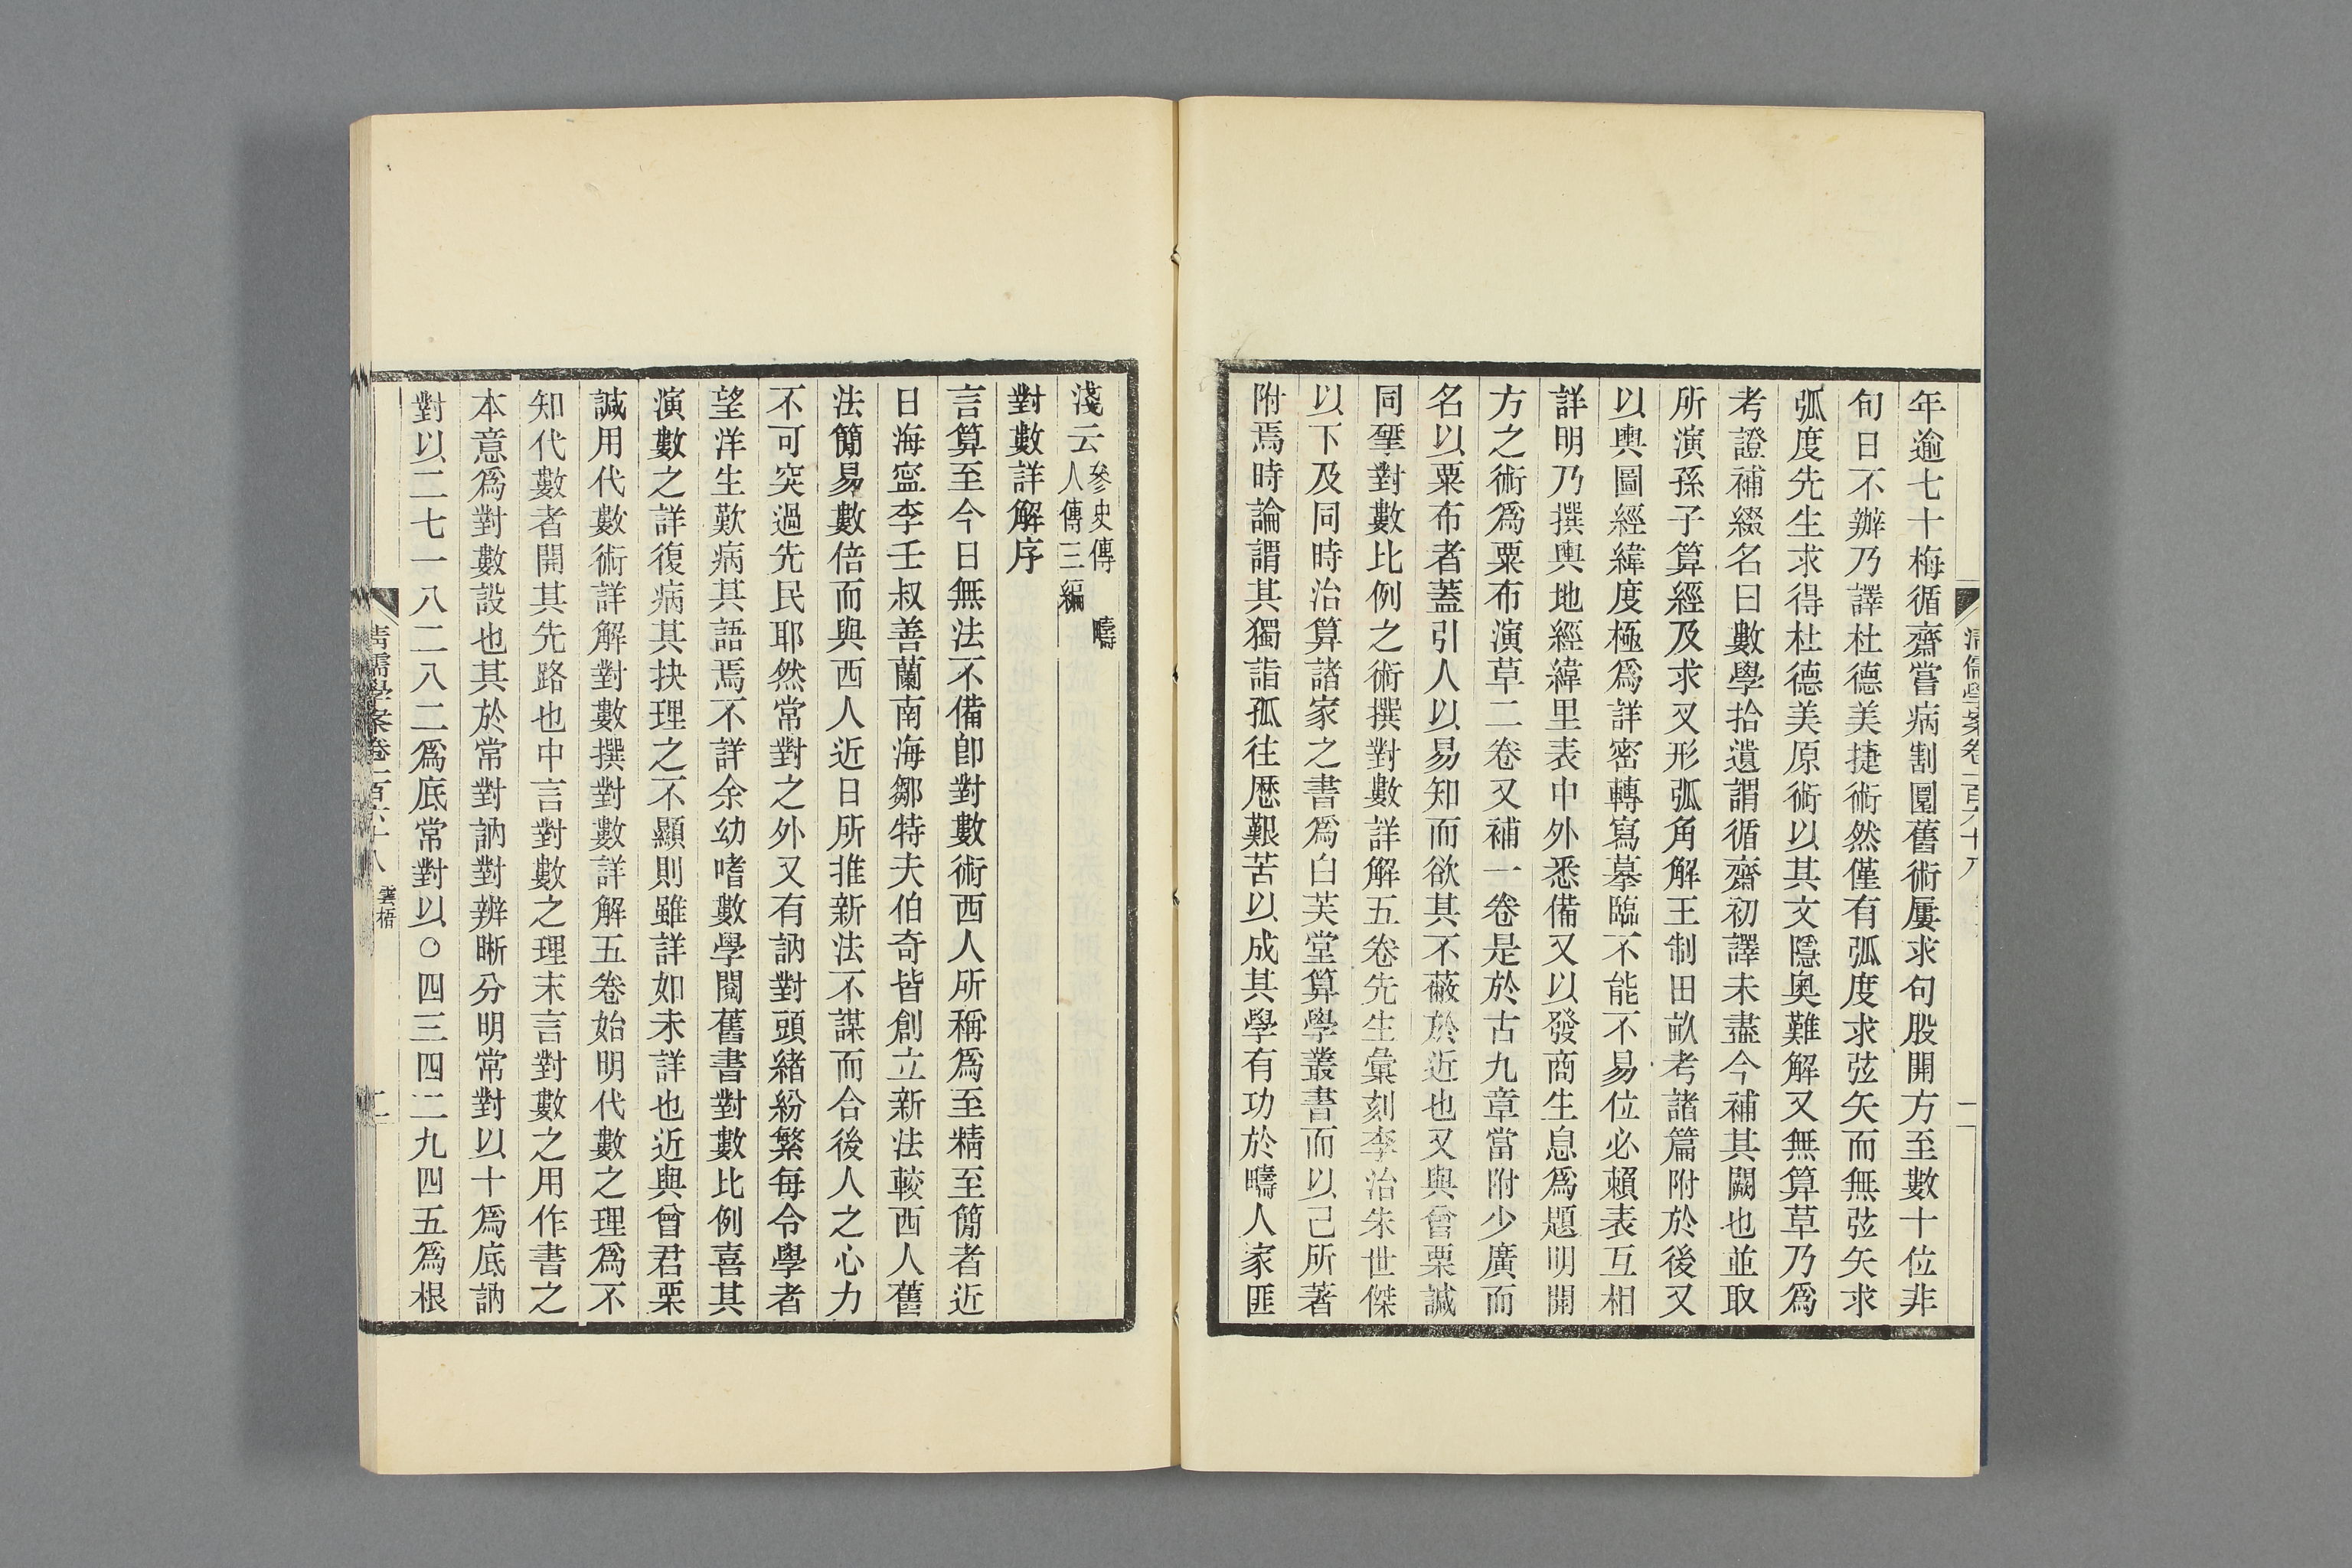 年逾七十梅循齋嘗病割圜舊術屢求句股開方至數十位非
旬日不辦乃譯杜德美捷術然僅有弧度求弦矢而無弦矢求
弧度先生求得杜德美原術以其文隱奧難解又無算草乃爲
考證補綴名曰數學拾遺謂循齋初譯未盡今補其闕也並取
所演孫子算經及求叉形弧角解王制田畝考諸篇附於後又
以輿圖經緯度極爲詳密轉寫摹臨不能不易位必賴表互相
詳明乃撰輿地經緯里表中外悉備又以發商生息爲題明開
方之術爲粟布演草二卷又補一卷是於古九章當附少廣而
名以粟布者蓋引人以易知而欲其不蔽於近也又與曾栗諴
同揅對數比例之術撰對數詳解五卷先生彙刻李冶朱世傑
以下及同時治算諸家之書爲白芙堂算學叢書而以己所著
附焉時論謂其獨詣孤往歷艱苦以成其學有功於疇人家匪
淺云參史傳 疇
人傳三編
對數詳解序
言算至今日無法不備卽對數術西人所稱爲至精至簡者近
日海寍李壬叔善蘭南海鄒特夫伯奇皆創立新法較西人舊
法簡易數倍而與西人近日所推新法不謀而合後人之心力
不可突過先民耶然常對之外又有訥對頭緒紛繁每令學者
望洋生歎病其語焉不詳余幼嗜數學閱舊書對數比例喜其
演數之詳復病其抉理之不顯則雖詳如未詳也近與曾君栗
諴用代數術詳解對數撰對數詳解五卷始明代數之理爲不
知代數者開其先路也中言對數之理末言對數之用作書之
本意爲對數設也其於常對訥對辨晰分明常對以十爲底訥
對以二七一八二八二爲底常對以〇四三四二九四五爲根
清儒學案卷一百六十八 雲梧 二